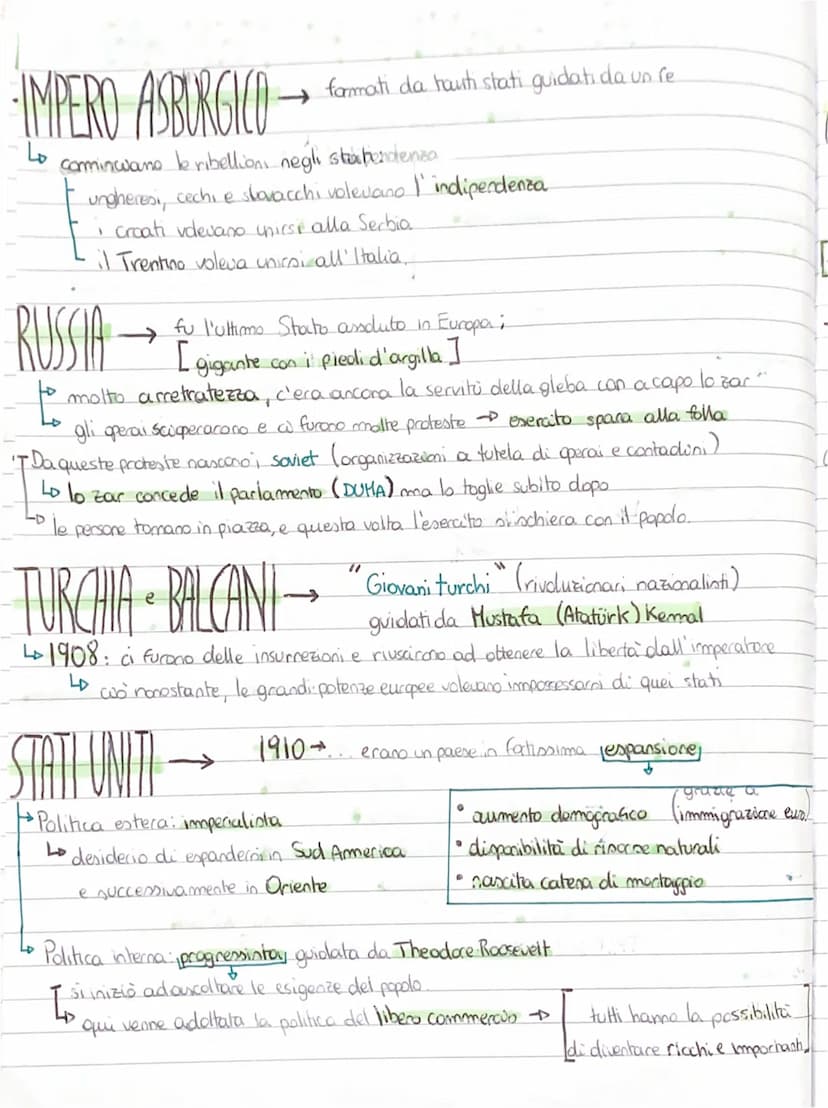 ·IMPERO ASBURGICO → formati da tanti stati guidati da un re
↳ cominciano le ribellioni negli
ungheresi, cechi e slovacchi volevano l'indipendenza
i croati volevano unirsi alla Serbia
il Trentino voleva unirsi all'Italia.
RUSSIA → fu l'ultimo Stato assoluto in Europa;
[gigante con i piedi d'argilla]
↳ molto arretratezza, c'era ancora la servitù della gleba con a capo lo zar
↳ gli operai scioperarono e ci furono molte proteste → esercito spara alla folla
Da queste proteste nascono i soviet (organizzazioni a tutela di operai e contadini)
↳ lo zar concede il parlamento (DUMA) ma lo toglie subito dopo
↳ le persone tornano in piazza, e questa volta l'esercito si schiera con il popolo.
TURCHIA e BALCANI → "Giovani turchi" (rivoluzionari nazionalisti)
guidati da Mustafa (Atatürk) Kemal
↳ 1908: ci furono delle insurrezioni e riuscirono ad ottenere la libertà dall'imperatore
↳ ciò nonostante, le grandi potenze europee volevano impossessarsi di quei stati
STATI UNITI → 1910 →... erano un paese in fortissima espansione
↳ Politica estera: imperialista
↳ desiderio di espandersi in Sud America
e successivamente in Oriente
• aumento demografico (grazie a immigrazione eur)
• disponibilità di risorse naturali
• nascita catena di montaggio
↳ Politica interna: progressista guidata da Theodore Roosevelt
si iniziò ad ascoltare le esigenze del popolo.
↳ qui venne adottata la politica del libero commercio → [tutti hanno la possibilità
di diventare ricchi e importanti]